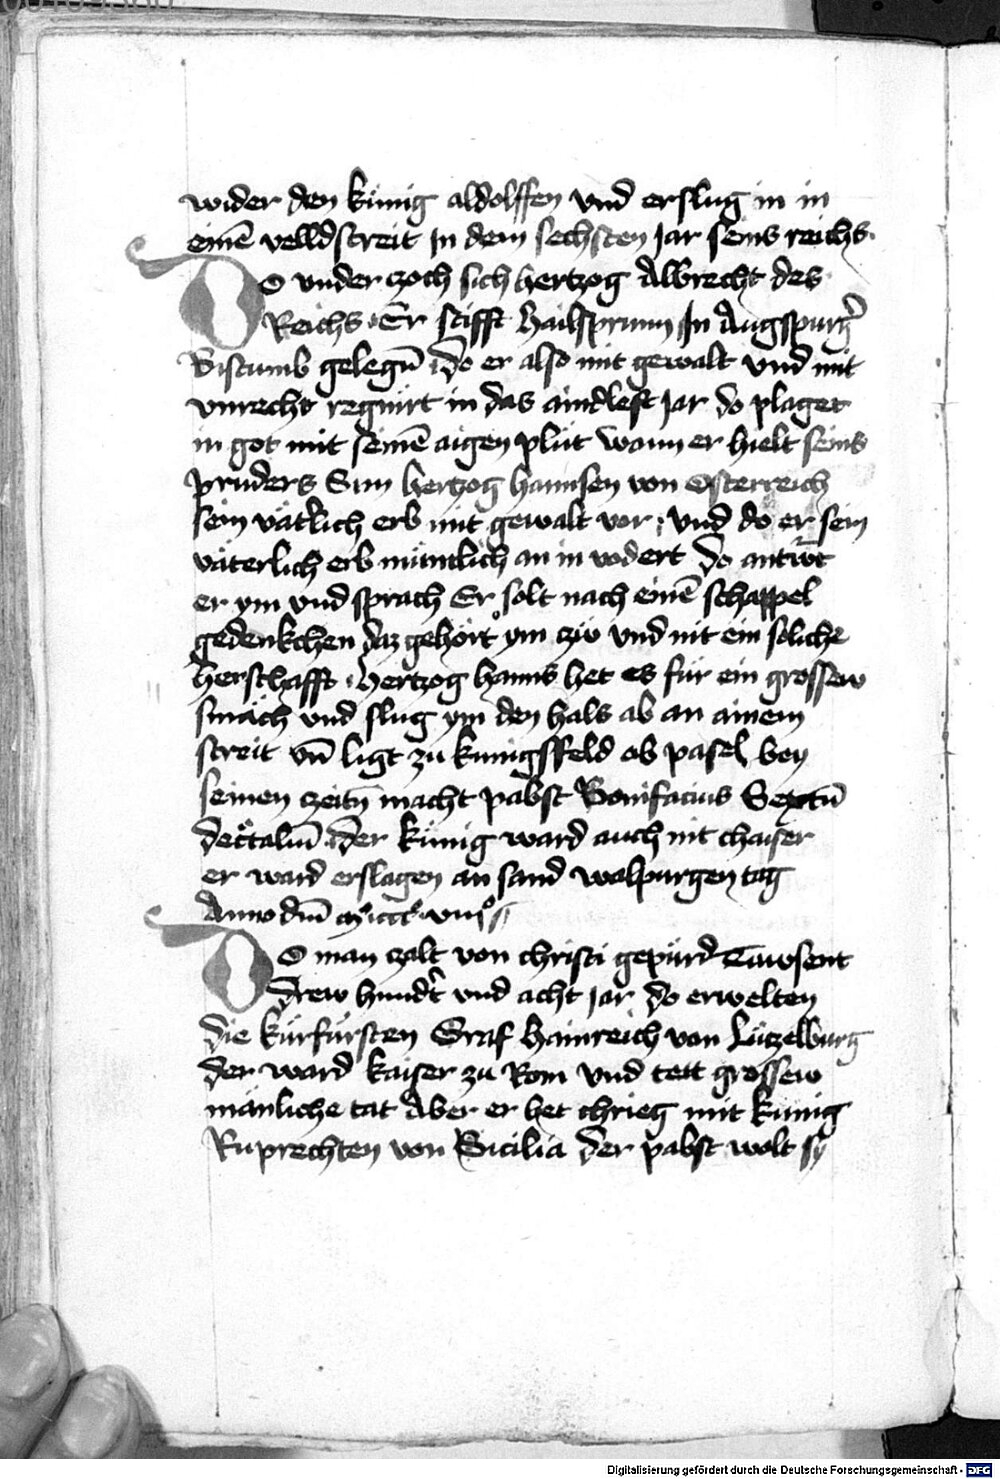 wider den künig aldolffen vnd erslug in in
einē velldstreit In dem sechsten Jar seins reichs
Do vnder zoch sich hertzog Albrecht des
Reichs Er stifft hailsprunn In Augspurg̕
Bistumb gelegn̄ do er also mit gewalt vnd mit
vnrecht regnirt in das aindlest Jar do plaget
in got mit seinē aigen plüt wann er hielt seins
pruders Sun hertzog hannsen von Osterreich
sein vät̕lich erb mit gewalt vor vnd do er sein
väterlich erb müntlich an in vodert do antwͦrt
er ym vnd sprach Er solt nach einē schappel
gedenkchen daz gehört ym zw vnd nit ein soliche
herschafft hertzog hanns het es für ein grossew
smäch vnd slug ym den hals ab an ainem
streit vn̄ ligt zu kunigsffeld ob pasel bey
seinen zeitn̄ macht pabst Bonifacius Sextū
dec̕taliū der künig ward auch nit chaiser
er ward erslagen an sand walpurgen tag
Anno dm̄ mᵒcccᵒ viiiᵒ
Do man zalt von christi gepürd Tawsent
drew hund̕t vnd acht Jar do erwelten
die kürfürsten Graf hainreich von Lützelburg
der ward kaiser zu Rom vnd tett grossew
mänliche tat Aber er het chrieg mit künig
Ruprechten von Sicilia der pabst wolt sy
Digitalisierung gefördert durch die Deutsche Forschungsgemeinschaft - DFG